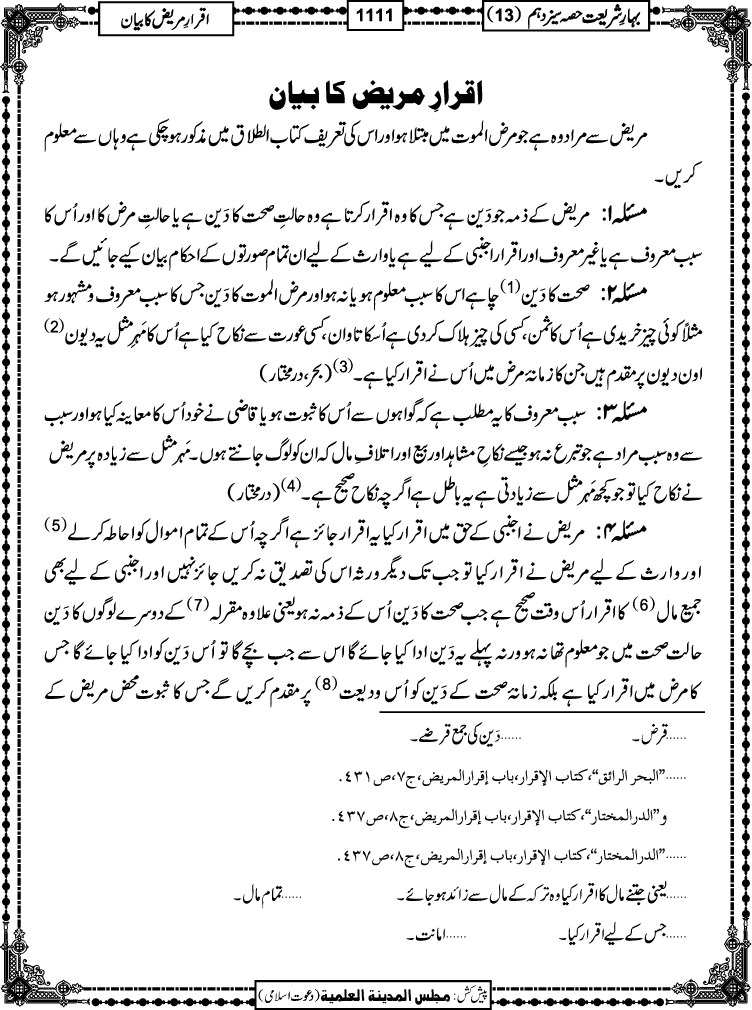 بہارِ شریعت حصہ سیزدہم (13)
1111
اقرارِ مریض کا بیان
اقرارِ مریض کا بیان
مریض سے مراد وہ ہے جو مرض الموت میں مبتلا ہو اور اس کی تعریف کتاب الطلاق میں مذکور ہو چکی ہے وہاں سے معلوم
کریں۔
مسئلہ ۱: مریض کے ذمہ جو دَین ہے جس کا وہ اقرار کرتا ہے وہ حالتِ صحت کا دَین ہے یا حالتِ مرض کا اور اُس کا
سبب معروف ہے یا غیر معروف اور اقرار اجنبی کے لیے ہے یا وارث کے لیے ان تمام صورتوں کے احکام بیان کیے جائیں گے۔
مسئلہ ۲: صحت کا دَین (1) چاہے اس کا سبب معلوم ہو یا نہ ہو اور مرض الموت کا دَین جس کا سبب معروف و مشہور ہو
مثلاً کوئی چیز خریدی ہے اُس کا ثمن، کسی کی چیز ہلاک کردی ہے اُسکا تاوان، کسی عورت سے نکاح کیا ہے اُس کا مَہرِ مثل یہ دیون (2)
اون دیون پر مقدم ہیں جن کا زمانۂ مرض میں اُس نے اقرار کیا ہے۔ (3) (بحر، درمختار)
مسئلہ ۳: سبب معروف کا یہ مطلب ہے کہ گواہوں سے اُس کا ثبوت ہو یا قاضی نے خود اُس کا معاینہ کیا ہو اور سبب
سے وہ سبب مراد ہے جو تبرع نہ ہو جیسے نکاحِ مشاہد اور بیع اور اتلافِ مال کہ ان کو لوگ جانتے ہوں۔ مَہرِ مثل سے زیادہ پر مریض
نے نکاح کیا تو جو کچھ مَہرِ مثل سے زیادتی ہے یہ باطل ہے اگرچہ نکاح صحیح ہے۔ (4) (درمختار)
مسئلہ ۴: مریض نے اجنبی کے حق میں اقرار کیا یہ اقرار جائز ہے اگرچہ اُس کے تمام اموال کو احاطہ کرلے (5)
اور وارث کے لیے مریض نے اقرار کیا تو جب تک دیگر ورثہ اس کی تصدیق نہ کریں جائز نہیں اور اجنبی کے لیے بھی
جمیع مال (6) کا اقرار اُس وقت صحیح ہے جب صحت کا دَین اُس کے ذمہ نہ ہو یعنی علاوہ مقرلہ (7) کے دوسرے لوگوں کا دَین
حالت صحت میں جو معلوم تھا نہ ہو ورنہ پہلے یہ دَین ادا کیا جائے گا اس سے جب بچے گا تو اُس دَین کو ادا کیا جائے گا جس
کا مرض میں اقرار کیا ہے بلکہ زمانۂ صحت کے دَین کو اُس ودیعت (8) پر مقدم کریں گے جس کا ثبوت محض مریض کے
......قرض۔ ......دَین کی جمع قرضے۔
......”البحر الرائق“، کتاب الإقرار، باب إقرار المریض، ج۷، ص۴۳۱.
و”الدر المختار“، کتاب الإقرار، باب إقرار المریض، ج۸، ص۴۳۷.
......”الدر المختار“، کتاب الإقرار، باب إقرار المریض، ج۸، ص۴۳۷.
......یعنی جتنے مال کا اقرار کیا وہ ترکہ کے مال سے زائد ہو جائے۔ ......تمام مال۔
......جس کے لیے اقرار کیا۔ ......امانت۔
پیش کش: مجلس المدینۃ العلمیۃ (دعوت اسلامی)